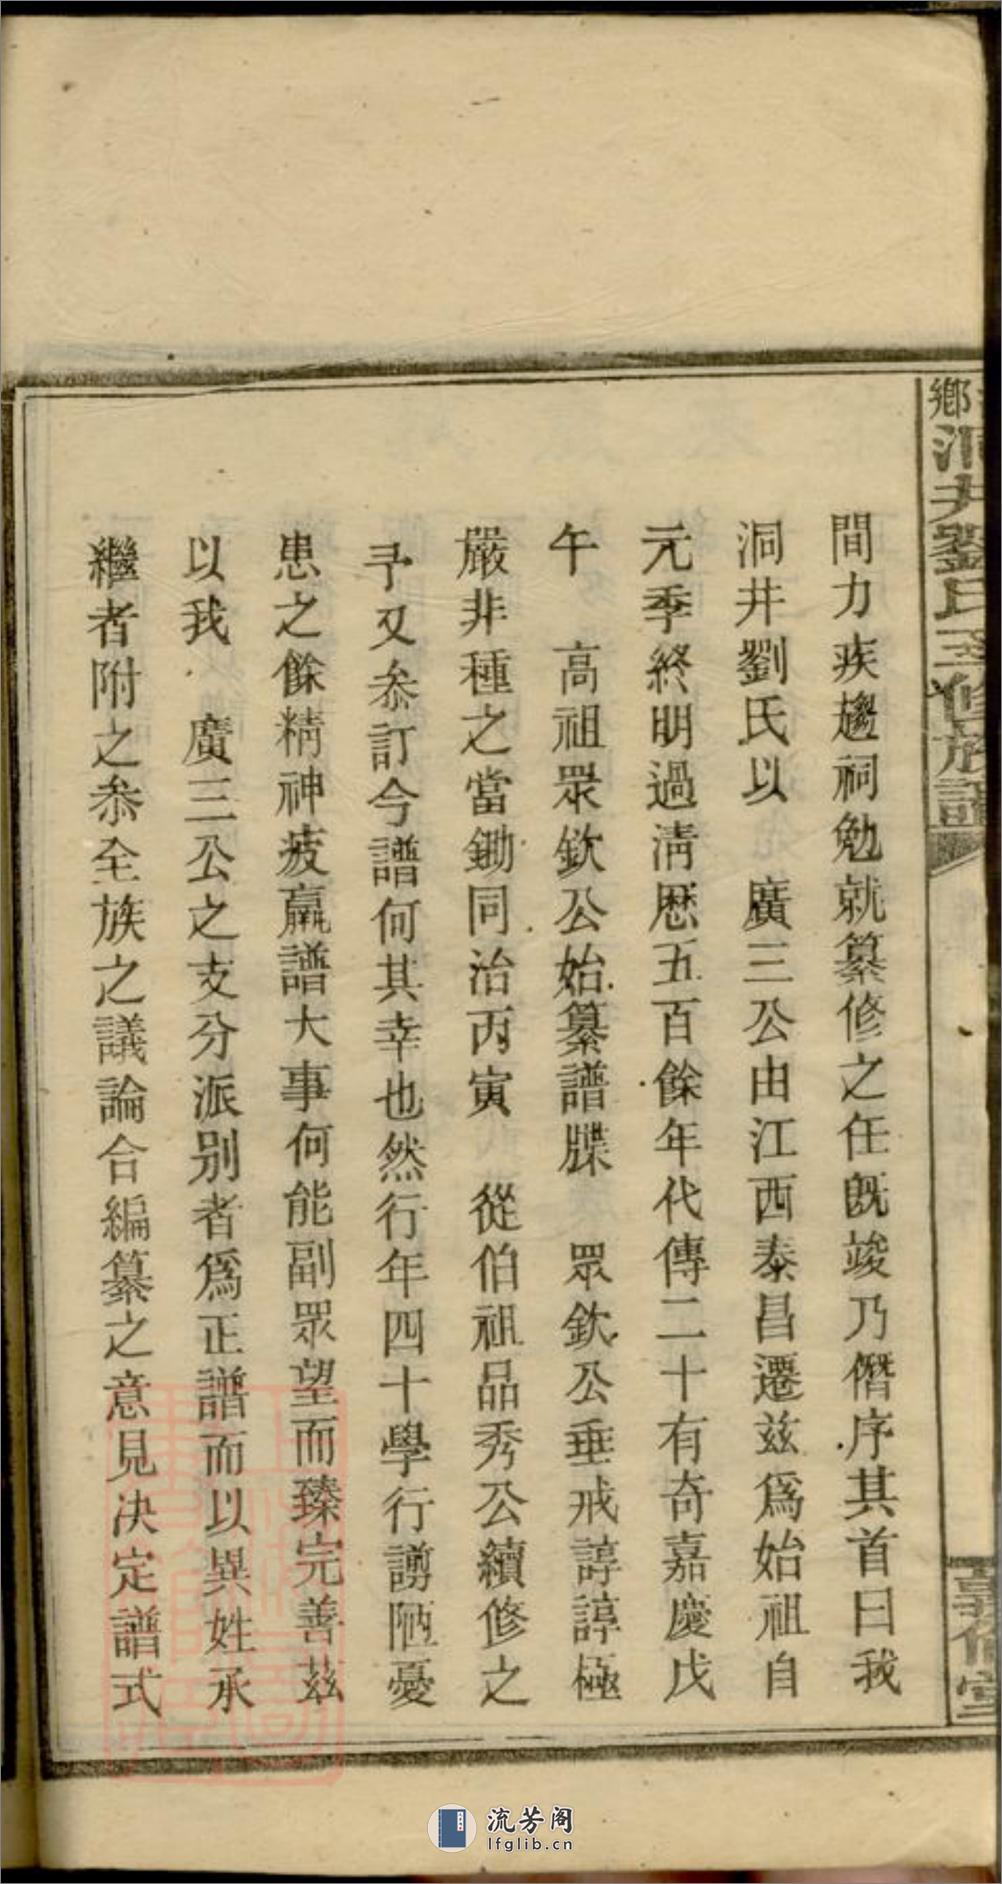 鄉洞井劉氏三修族譜
間力疾趨祠勉就纂修之任既竣乃僭序其首曰我
洞井劉氏以　廣三公由江西泰昌遷茲爲始祖自
元季終明過淸歷五百餘年代傳二十有奇嘉慶戊
午　高祖眾欽公始纂譜牒　眾欽公垂戒諄諄極
嚴非種之當鋤同治丙寅　從伯祖品秀公續修之
予又叅訂今譜何其幸也然行年四十學行謭陋憂
患之餘精神疲羸譜大事何能副眾望而臻完善茲
以我　廣三公之支分派別者爲正譜而以異姓承
繼者附之叅全族之議論合編纂之意見决定譜式
流芳阁
lfglib.cn